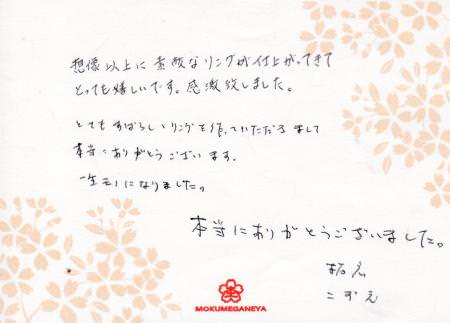 想像以上に素敵なリングが仕上がってきて
とっても嬉しいです。感激致しました。
とてもすばらしいリングを作っていただきまして
本当にありがとうございます。
一生モノになりました。
本当にありがとうございました。
こずえ
MOKUMEGANEYA